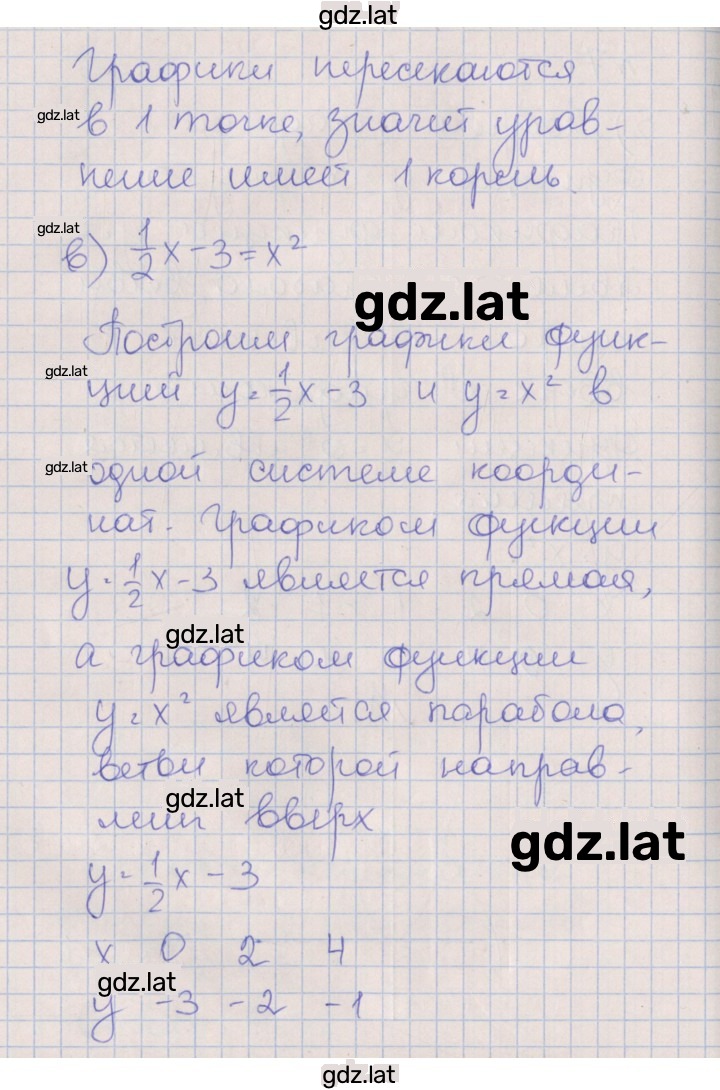 gdz.lat
Графики пересекаются
gdz.lat
в 1 точке, значит урав-
нение имеет 1 корень.
gdz.lat
в) 1/2 x - 3 = x²
gdz.lat
Построим графики функ-
gdz.lat
ций y = 1/2 x - 3 и y = x² в
gdz.lat
одной системе коорди-
нат. Графиком функции
y = 1/2 x - 3 является прямая,
gdz.lat
а графиком функции
y = x² является парабола,
ветви которой направ-
gdz.lat
лены вверх
gdz.lat
y = 1/2 x - 3
x 0 2 4
gdz.lat
y -3 -2 -1
gdz.lat